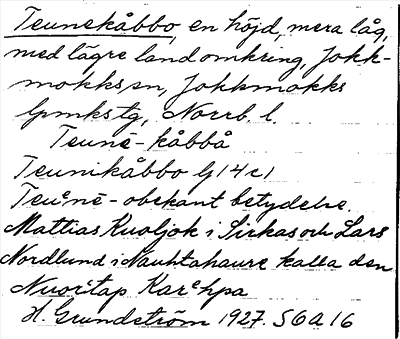 Teunekåbbo, en höjd, mera låg,
med lägre land omkring, Jokk-
mokks sn, Jokkmokks
lpmkstg, Norrb. l.
Teunē-kåbbå
Teunikåbbo G14c1
Teuᵉnē - obekant betydelse.
Mattias Kuoljok i Sirkas och Lars
Nordlund i Nautahaure kalla den
Nuortap Karᵉhpa
H. Grundström 1927. S6A16